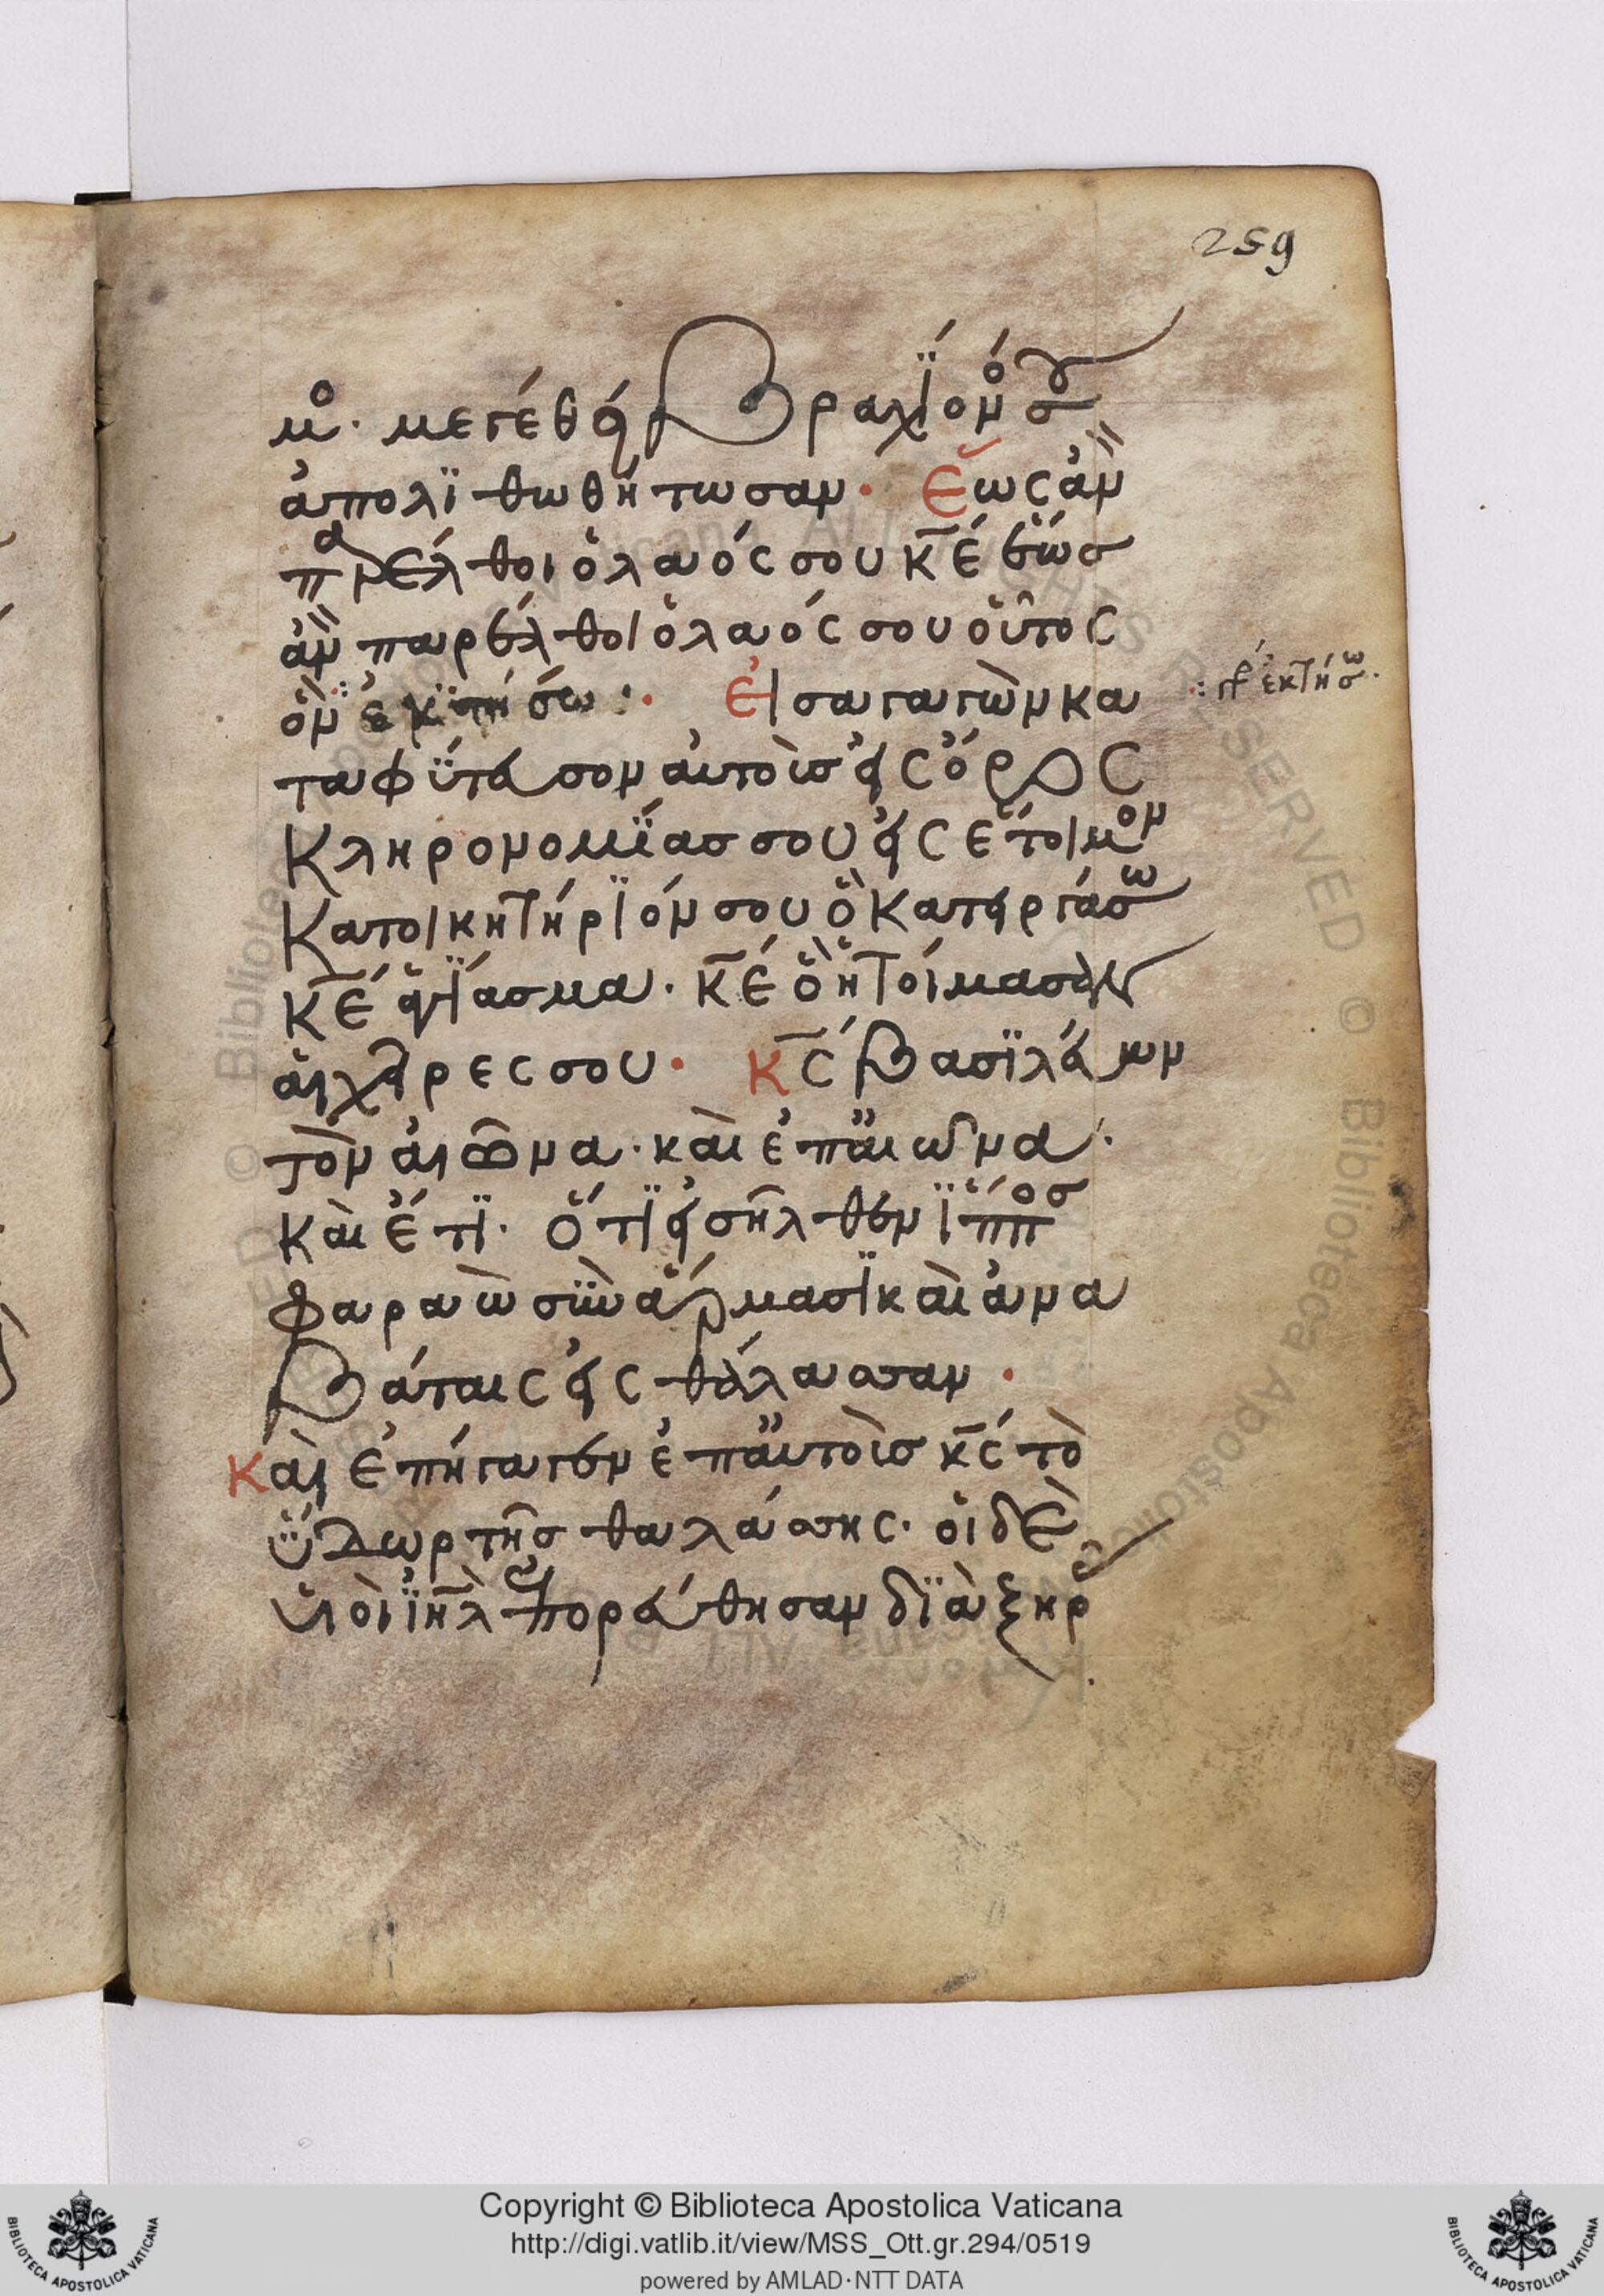 259
μο· μεγέθει βραχΐονός σου
ἀπολϊθωθήτωσαν· Ἕως ἂν
παρέλθοι ὁ λαός σου κε̄ ἕως
ἂν παρέλθοι ὁ λαός σου οὗτος
ὃν ἐκτήσω· Εἰσαγαγὼν κα
ταφΰτευσον αὐτοὺσ εἰς ὄρος
κληρονομΐασ σου εἰς ἕτοιμον
κατοικητήρϊόν σου ὃ κατειργάσω
κε̄ ἁγΐασμα· κε̄ ὃ ἡτοίμασαν
αἱ χεῖρες σου· κς̄ βασϊλεύων
τὸν αἰῶνα· καὶ ἐπ' αἰῶνα·
καὶ ἔτϊ· Ὅτϊ εἰσῆλθεν ἵπποσ
φαραὼ σὺν ἅρμασϊ καὶ ἀνα
βάταις εἰς θάλασσαν·
Καὶ ἐπήγαγεν ἐπ' αὐτοὺσ κς̄ τὸ
ὕδωρ τῆσ θαλάσσης· οἱ δὲ
υἱοὶ ιηλ̄ ἐπορεύθησαν δϊὰ ξηρ
ἐκτήσω·
Copyright © Biblioteca Apostolica Vaticana
http://digi.vatlib.it/view/MSS_Ott.gr.294/0519
powered by AMLAD·NTT DATA
BIBLIOTECA APOSTOLICA VATICANA
BIBLIOTECA APOSTOLICA VATICANA